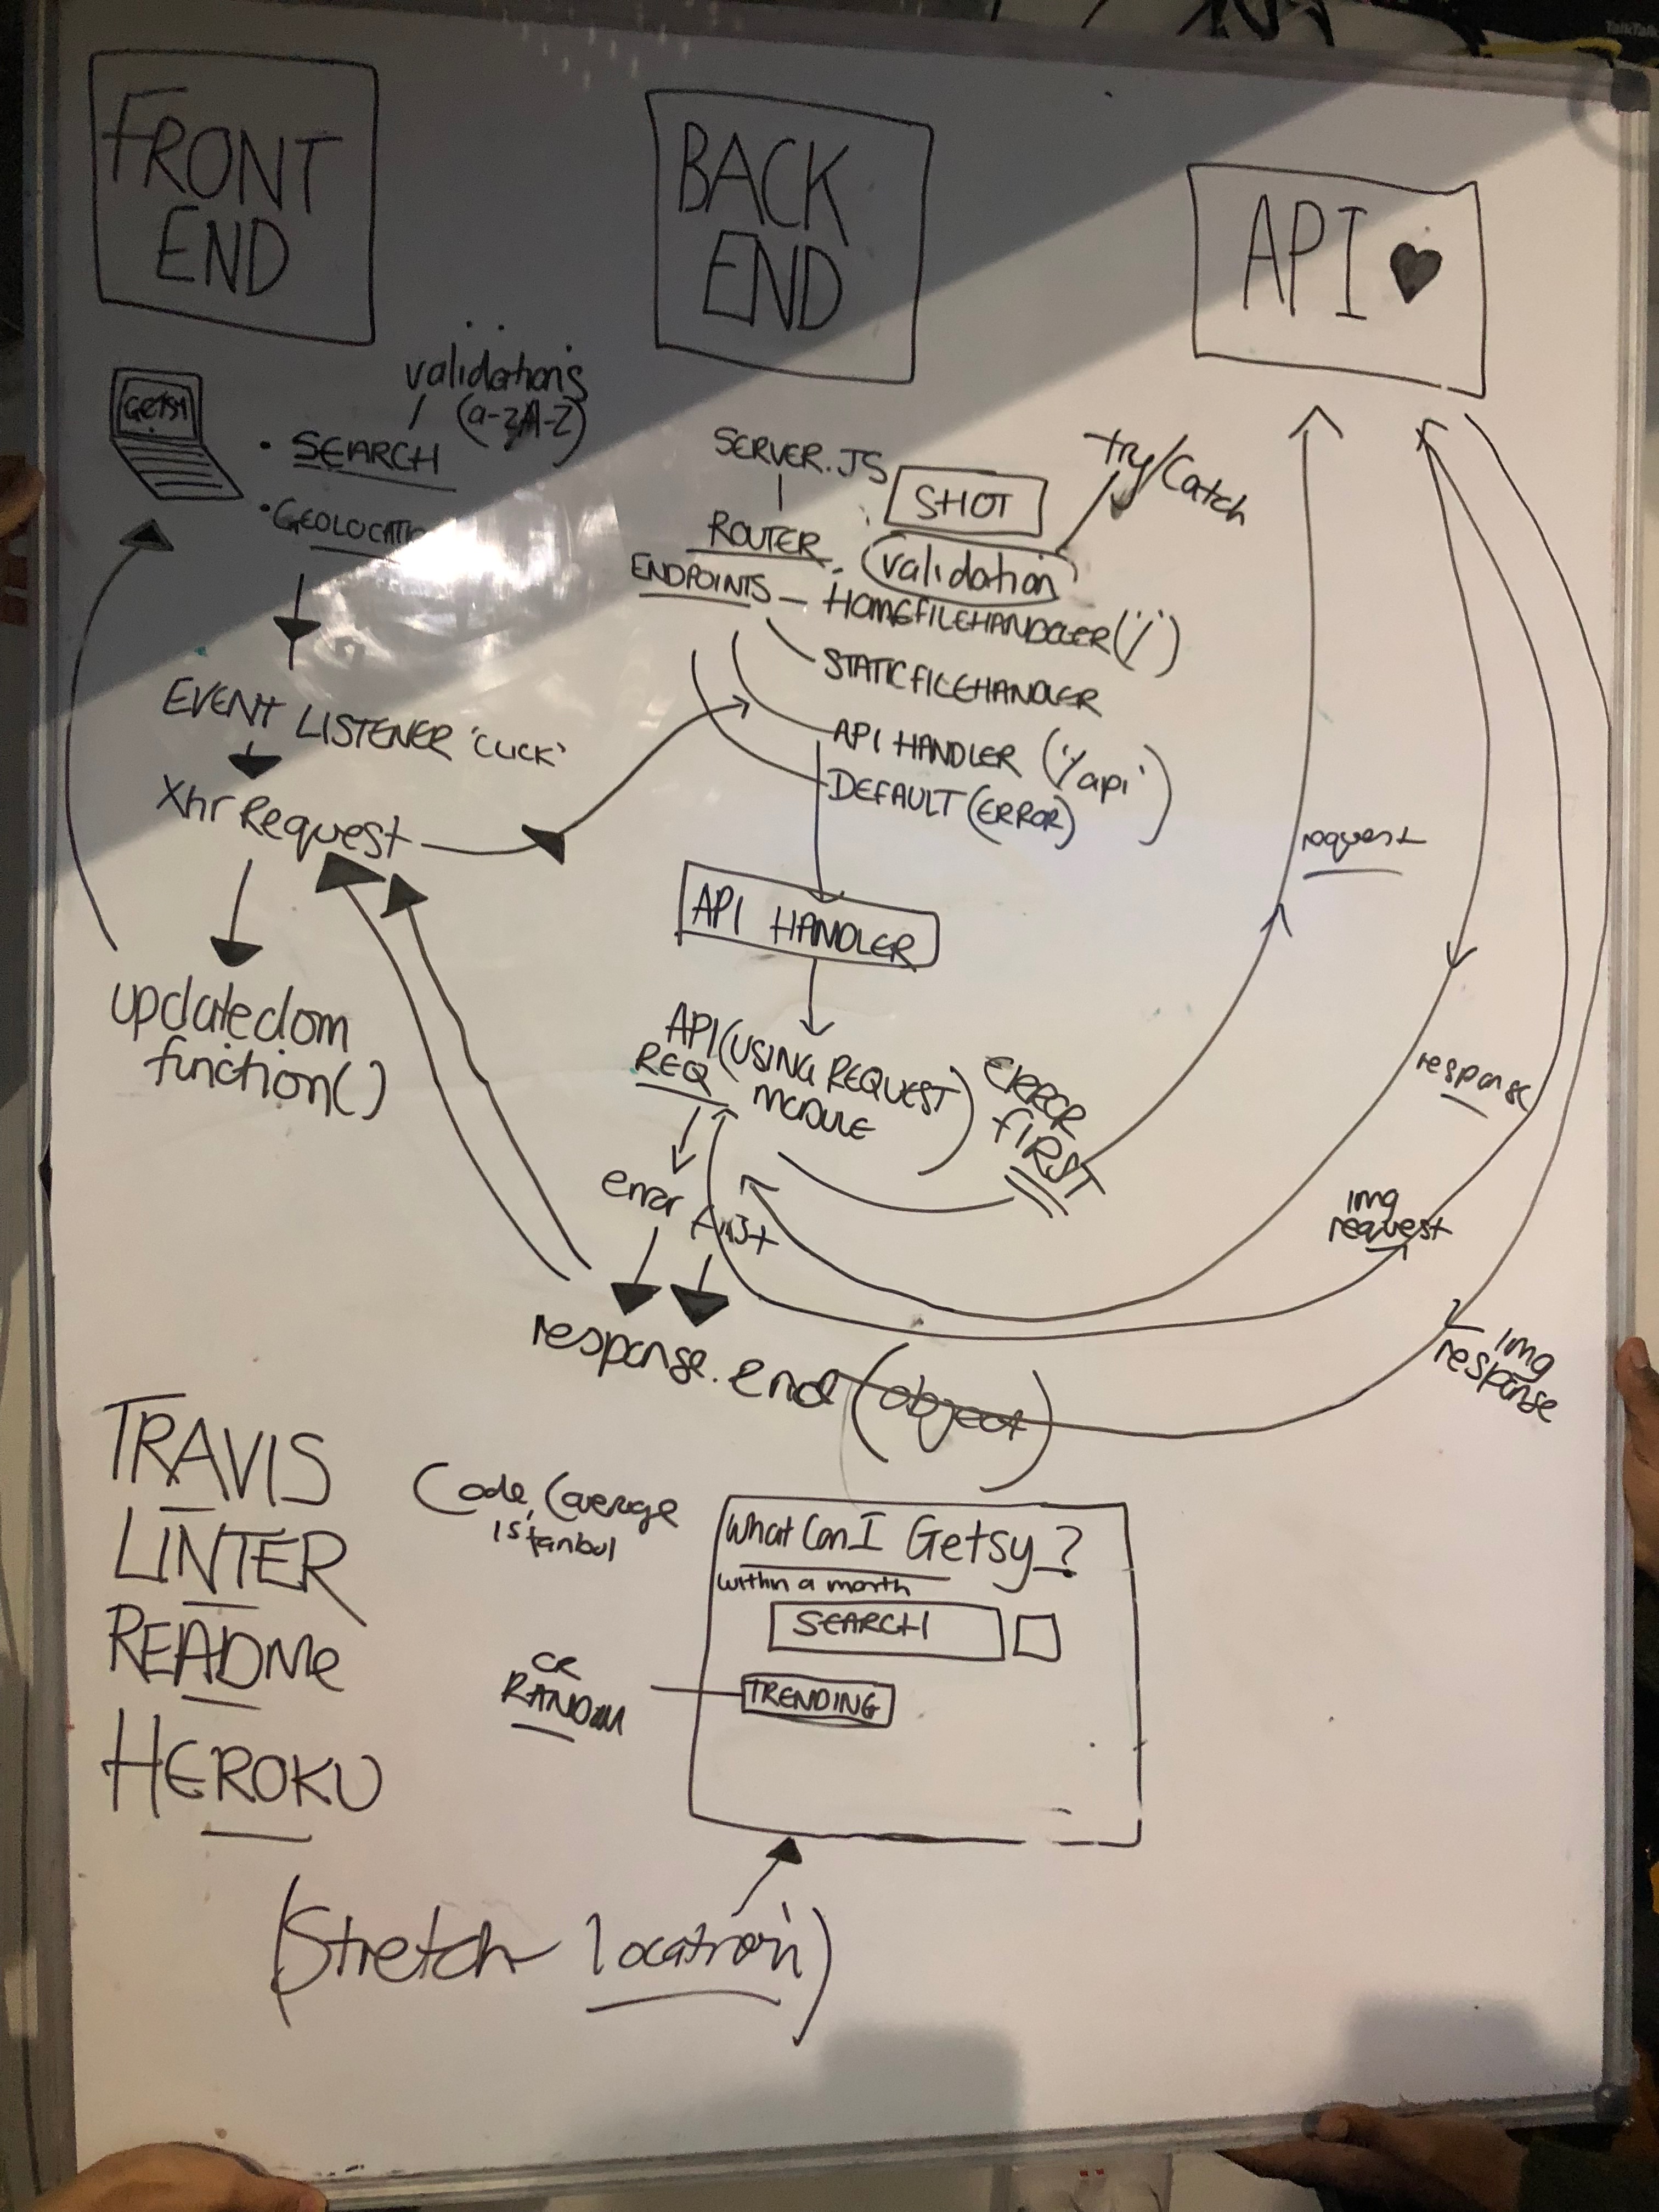 TalkTalk
FRONT
END
BACK
END
API ♥
GETSY
validations
(a-zA-Z)
• SEARCH
• GEOLOCATI
EVENT LISTENER 'CLICK'
Xhr Request
updatedom
function()
SERVER.JS
SHOT
try/Catch
ROUTER
validation
ENDPOINTS – HOMEFILEHANDLER ('/')
STATICFILEHANDLER
API HANDLER ('/api')
DEFAULT (ERROR)
API HANDLER
API (USING REQUEST
REQ MODULE)
ERROR
FIRST
error first
response.end (object)
request
response
img
request
img
response
TRAVIS
LINTER
README
HEROKU
Code Coverage
Istanbul
What Can I Getsy?
within a month
SEARCH
TRENDING
OR
RANDOM
(Stretch location)